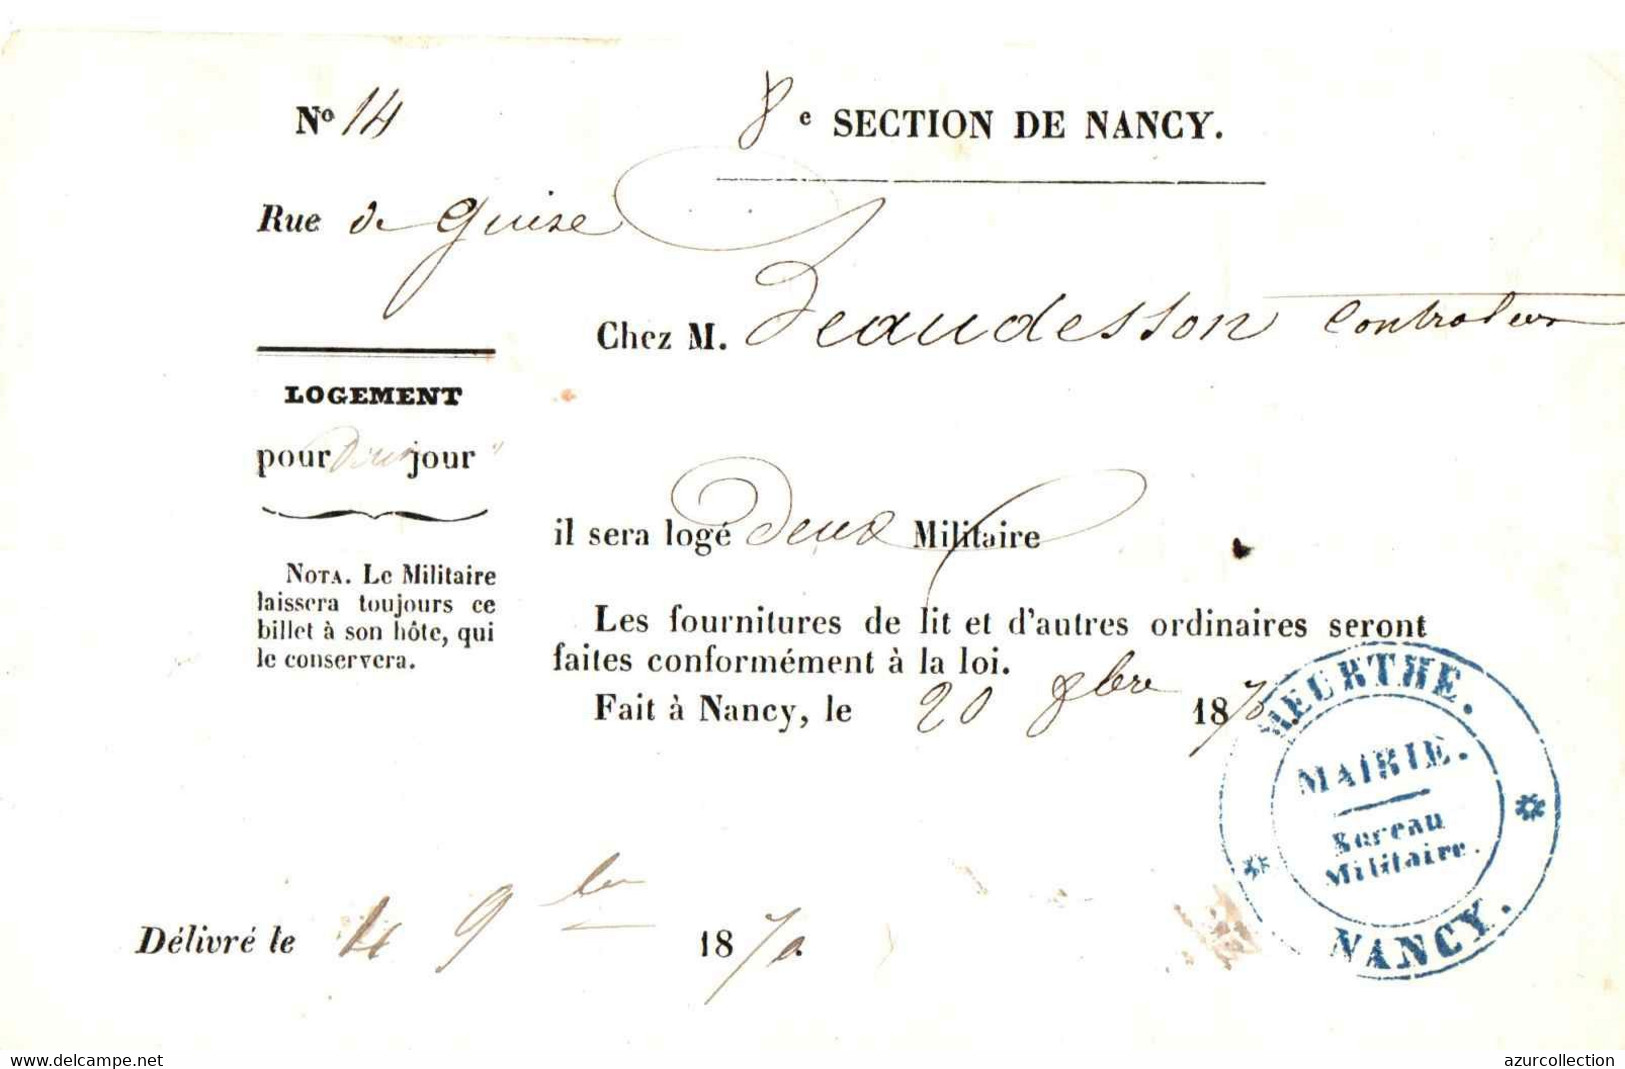 No 14
8 e SECTION DE NANCY.
Rue de Guise
Chez M. Beaudesson Controleur
LOGEMENT
pour Deux jour "
il sera logé Deux Militaire
NOTA. Le Militaire
laissera toujours ce
billet à son hôte, qui
le conservera.
Les fournitures de lit et d'autres ordinaires seront
faites conformément à la loi.
Fait à Nancy, le 20 8bre 1870.
MEURTHE.
MAIRIE.
Bureau
Militaire.
NANCY.
Délivré le 4 9bre 1870.
www.delcampe.net
azurcollection